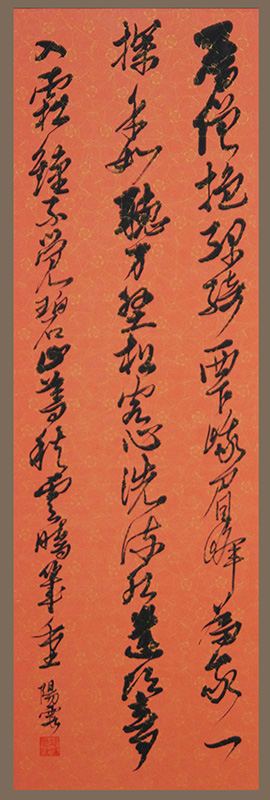 蜀僧抱綠綺西下峨眉峰為我一
揮手如聽萬壑松客心洗流水遺響
入霜鐘不覺碧山暮秋雲暗幾重